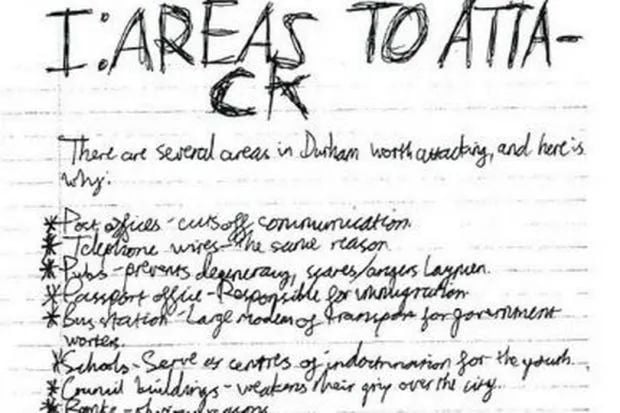 I: AREAS TO ATTA-
CK
There are several areas in Durham worth attacking, and here is
why:
* Post offices - cuts off communication.
* Telephone wires - the same reason
* Pubs - prevents degeneracy, scares/angers laymen.
* Passport office - Responsible for immigration
* Bus station - Large modem of transport for government
workers.
* Schools - Serve as centres of indoctrination for the youth.
* Council buildings - weakens their grip over the city.
* Banks - obvious reasons